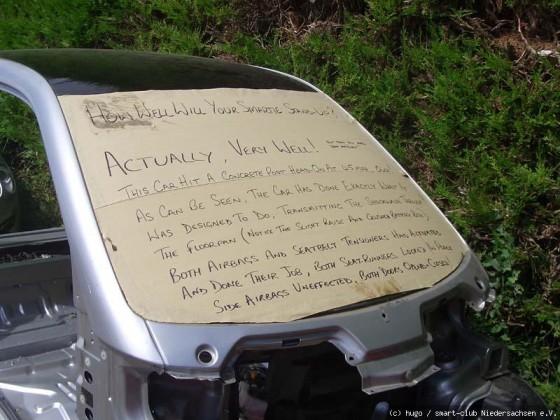 How Well Will Your Smartie Stand Up?
Actually, Very Well!
This Car Hit A Concrete Post Head On At 65 mph
As Can Be Seen, The Car Has Done Exactly What It
Was Designed To Do, Transmitting The Shockwave Through
The Floorpan (Notice The Slight Raise And Crushed Bottom Rail)
Both Airbags And Seatbelt Tensioners Has Activated
And Done Their Job, Both Seat Runners Locked In Place
Side Airbags Uneffected, Both Doors Opened + Closed!
(c) hugo / smart-club Niedersachsen e.V.